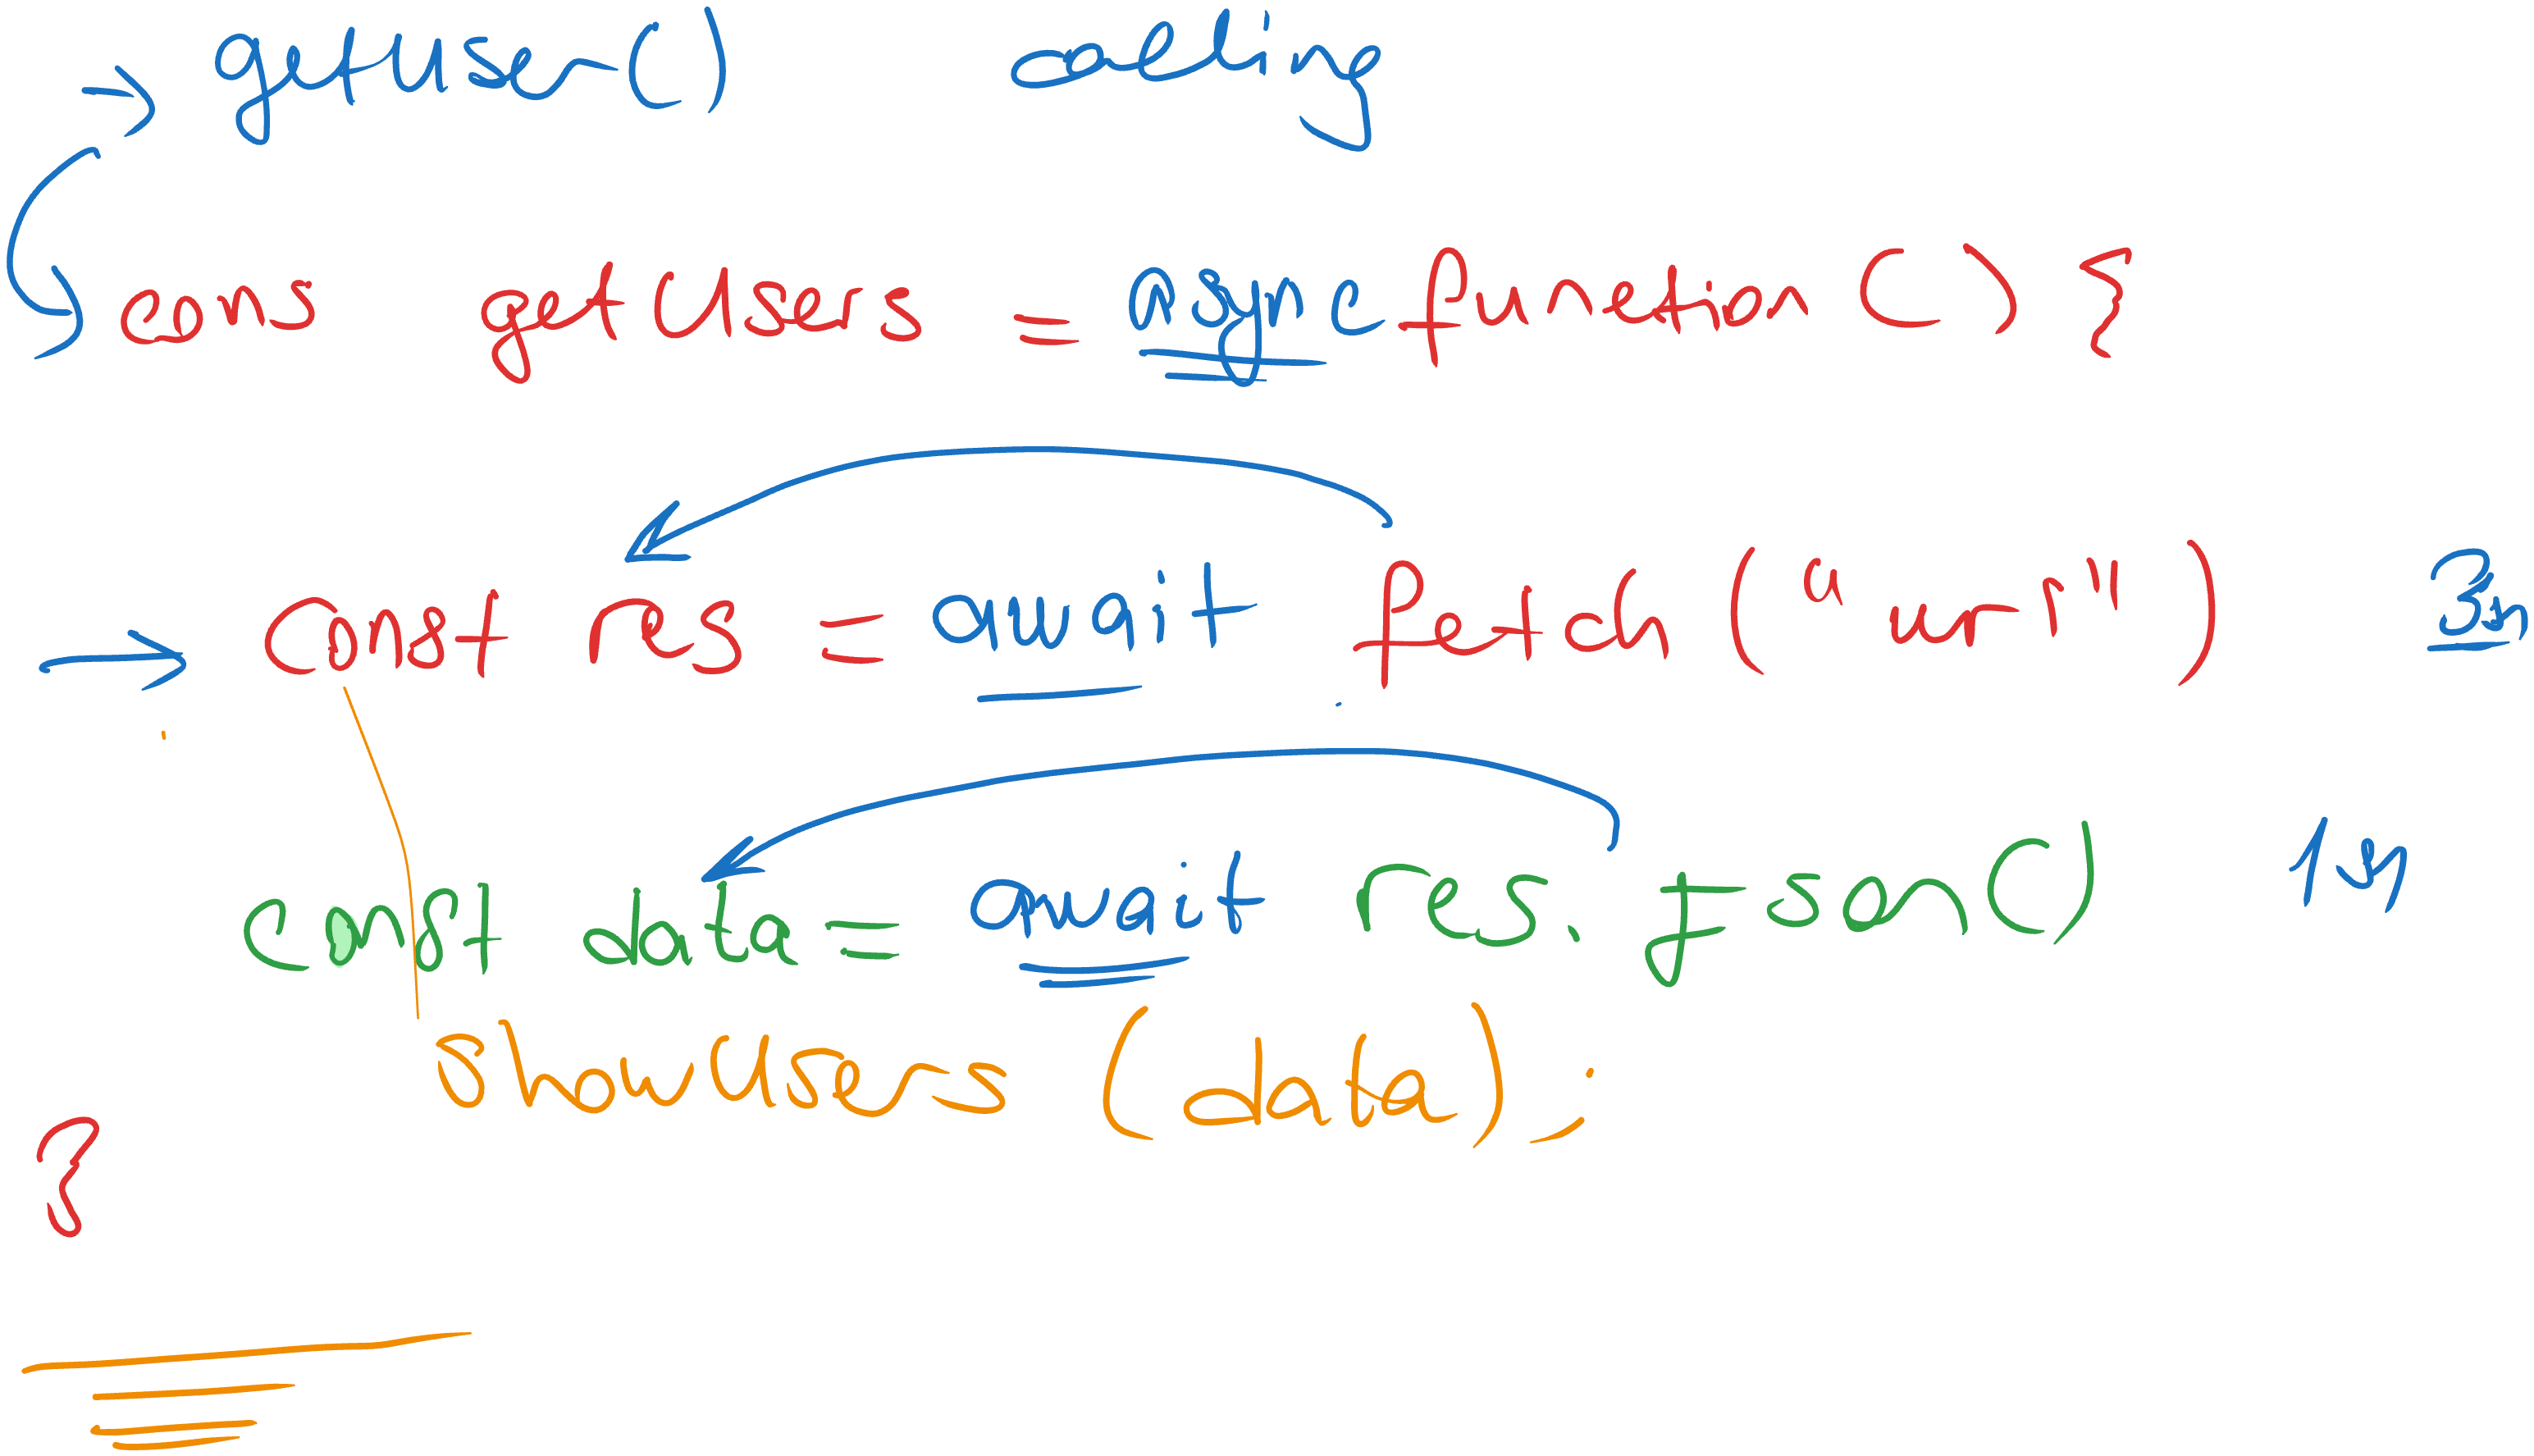 → getUser() calling
cons getUsers = async function() {
→ const res = await fetch("url") 3sn
const data = await res.json() 1sn
showUsers (data);
}